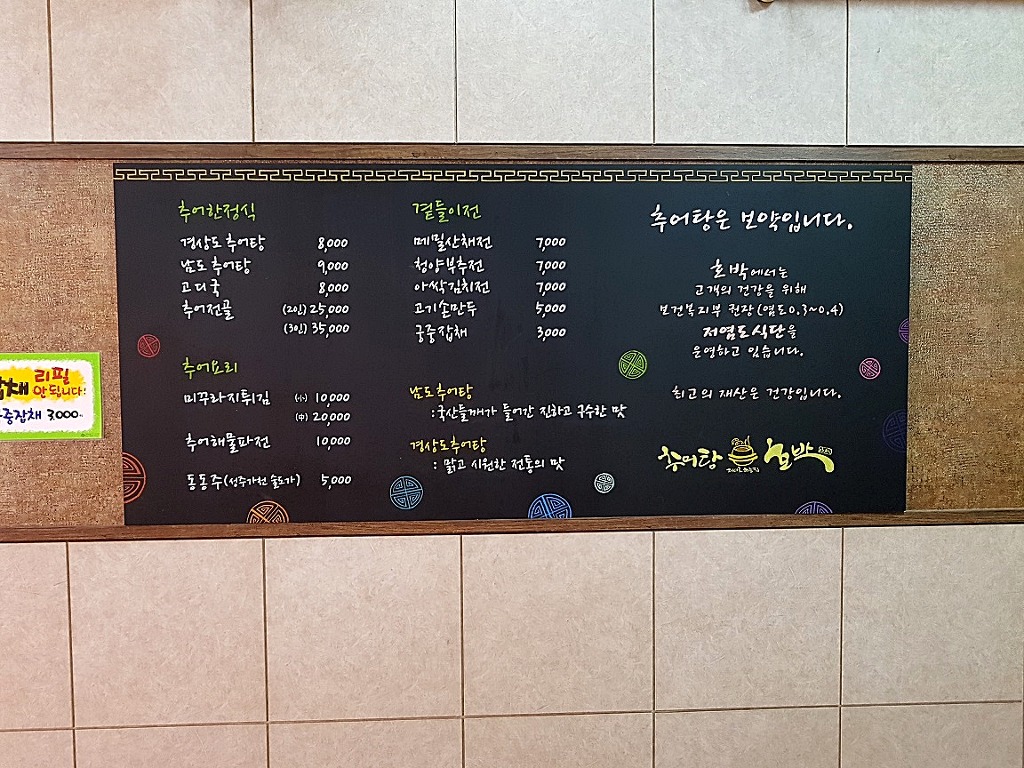 추어한정식
경상도 추어탕 8,000
남도 추어탕 9,000
고디국 8,000
추어전골 (2인) 25,000
(3인) 35,000
추어요리
미꾸라지튀김 (小) 10,000
(中) 20,000
추어해물파전 10,000
동동주(선주가원 술도가) 5,000
곁들이전
메밀산채전 7,000
청양부추전 7,000
아싹김치전 7,000
고기손만두 5,000
궁중잡채 3,000
남도추어탕
:국산들깨가 들어간 진하고 구수한 맛
경상도추어탕
: 맑고 시원한 전통의 맛
추어탕은 보약입니다.
호박에서는
고객의 건강을 위해
보건복지부 권장(염도0.3~0.4)
저염도식단을
운영하고 있습니다.
최고의 재산은 건강입니다.
추어탕 호박
리필
안됩니다!
중잡채 3,000